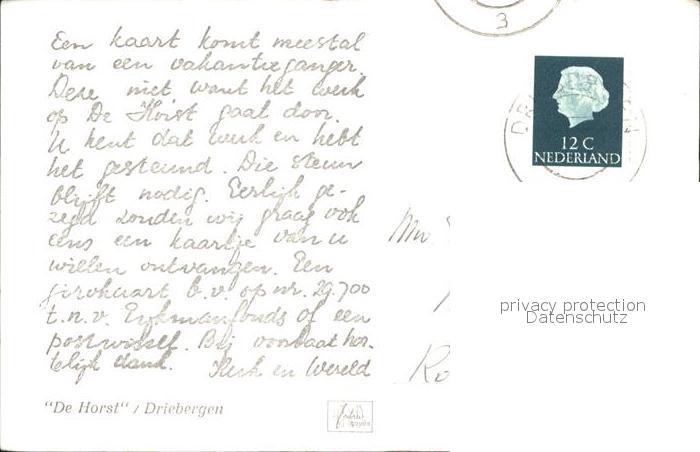 3
Een kaart komt meestal
van een vakantieganger.
Deze niet want het werk
op De Horst gaat door.
U kent dat werk en hebt
het gesteund. Die steun
blijft nodig. Eerlijk ge-
zegd zouden wij graag ook
eens een kaartje van u
willen ontvangen. Een
girokaart b.v. op nr. 29.700
t.n.v. Eykmanfonds of een
postwissel. Bij voorbaat har-
telijk dank. Kerk en Wereld
"De Horst" / Driebergen
12 C
NEDERLAND
privacy protection
Datenschutz